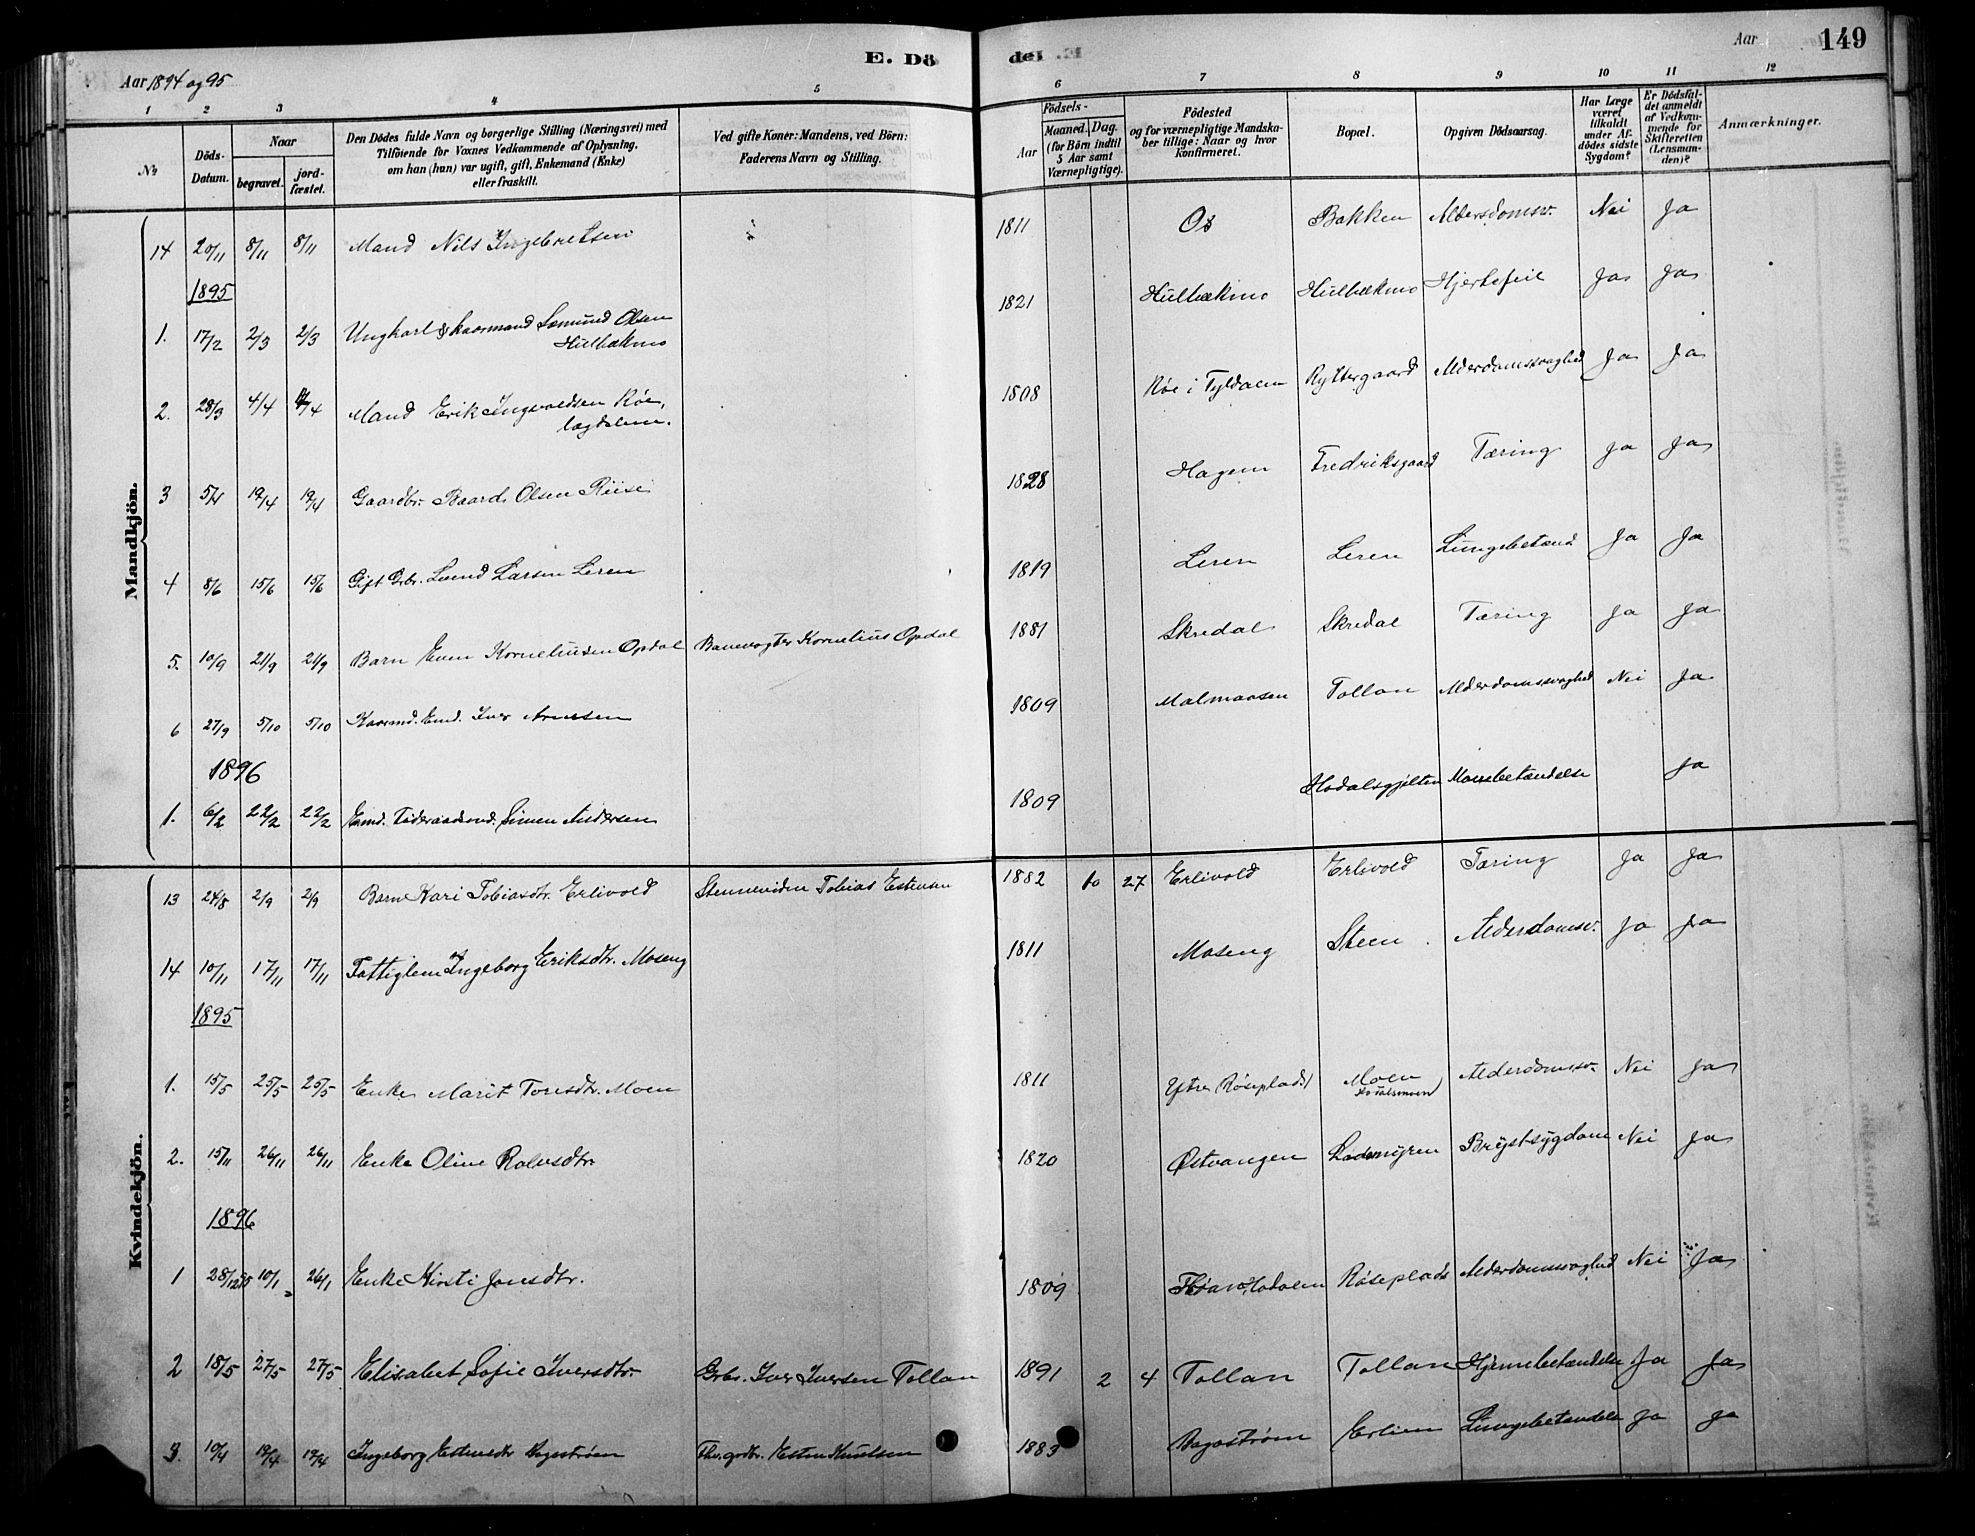 Aar 1894 og 95
E. Dö
del
Aar
149
1 2 3 4 5 6 7 8 9 10 11 12
No
Döds-Datum.
Naar
begravet.
jordfæstet.
Den Dödes fulde Navn og borgerlige Stilling (Næringsvei) med
Tilföiende for Voxnes Vedkommende af Oplysning,
om han (hun) var ugift, gift, Enkemand (Enke)
eller fraskilt.
Ved gifte Koner: Mandens, ved Börn:
Faderens Navn og Stilling.
Födsels-
Aar
Maaned. Dag.
(for Börn indtil
5 Aar samt
Værnepligtige).
Födested
og for værnepligtige Mandska-
ber tillige: Naar og hvor
konfirmeret.
Bopæl.
Opgiven Dödsaarsag.
Har Læge
været
tilkaldt
under Af-
dödes sidste
Sygdom?
Er Dödsfal-
det anmeldt
af Vedkom-
mende for
Skifteretten
(Lensman-
den)?
Anmærkninger.
Mandkjön.
14 20/11 8/11 8/11 Mand Nils Ingebretsen 1811 Os Bakken Aldersdomsv. Nei Ja
1895
1. 17/2 2/3 2/3 Ungkarl & kaarmand Sæmund Olsen
Hulbækmo 1821 Hulbækmo Hulbækmo Hjertefeil Ja Ja
2. 28/3 4/4 4/4 Mand Erik Ingvoldsen Röe,
lægdslem. 1808 Röe i Tyldalen Ryttergaard Alderdomssvaghed Ja Ja
3 5/4 19/4 19/4 Gaardbr. Baard Olsen Riise 1828 Hagen Fredriksgaard Tæring Ja Ja
4 8/6 15/6 15/6 Gift Gbr. Svend Larsen Leren 1819 Leren Leren Lungebetænd Ja Ja
5. 10/9 21/9 21/9 Barn Even Korneliusen Opdal Banevogter Kornelius Opdal 1881 Skredal Skredal Tæring Ja Ja
6 27/9 5/10 5/10 Kaarmd. Emd. Iver Arnesen 1809 Malmaasen Tollan Alderdomssvaghed Nei Ja
1896
1. 6/2 22/2 22/2 Emd. Föderaadsmd. Simen Andersen 1809 Hodalsgjelten Mavebetændelse Ja
Kvindekjön.
13 24/8 2/9 2/9 Barn Kari Tobiasdtr. Erlivold Tobias Estensen 1882 10 27 Erlivold Erlivold Tæring Ja Ja
14 10/11 17/11 17/11 Fattiglem Ingeborg Eriksdtr. Moseng 1811 Moseng Steen Alderdomsv. Ja Ja
1895
1. 15/5 25/5 25/5 Enke Marit Toresdtr. Moen 1811 Ytre Röseplads Moen
Hodalsmoen Alderdomsv. Nei Ja
2. 15/11 26/11 26/11 Enke Oline Rolvsdtr. 1820 Østvangen Ladsmyren Brystsygdom Nei Ja
1896
1 28/12 95 10/1 26/1 Enke Kirsti Jonsdtr. 1809 Hodalen Röseplads Alderdomssvaghed Nei Ja
2 18/5 27/5 27/5 Elisabet Sofie Iversdtr. Grbr. Iver Iversen Tollan 1891 2 4 Tollan Tollan Hjernebetændelse Ja Ja
3. 10/4 19/4 19/4 Ingeborg Estensdtr Bagströen Fhv. grdbr. Esten Knutsen 1883 Bagströen Erlien Lungebetændelse Ja Ja